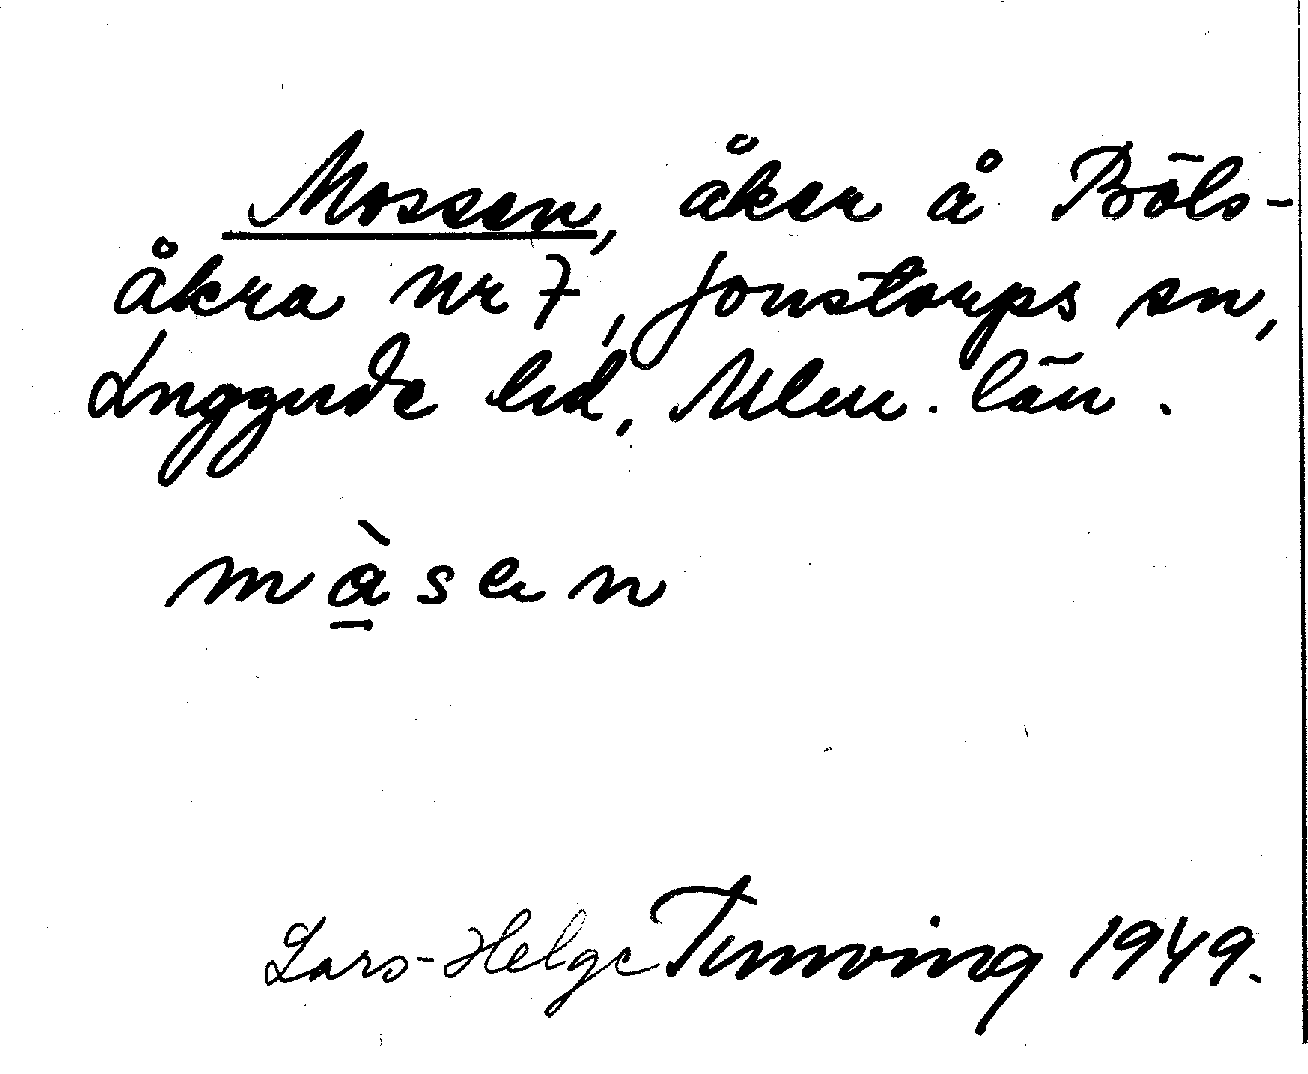 Mossen, åker å Böls-
åkra nr 7, Jonstorps sn,
Luggude hd, Mlm. län.
màsen
Lars-Helge Tunving 1949.